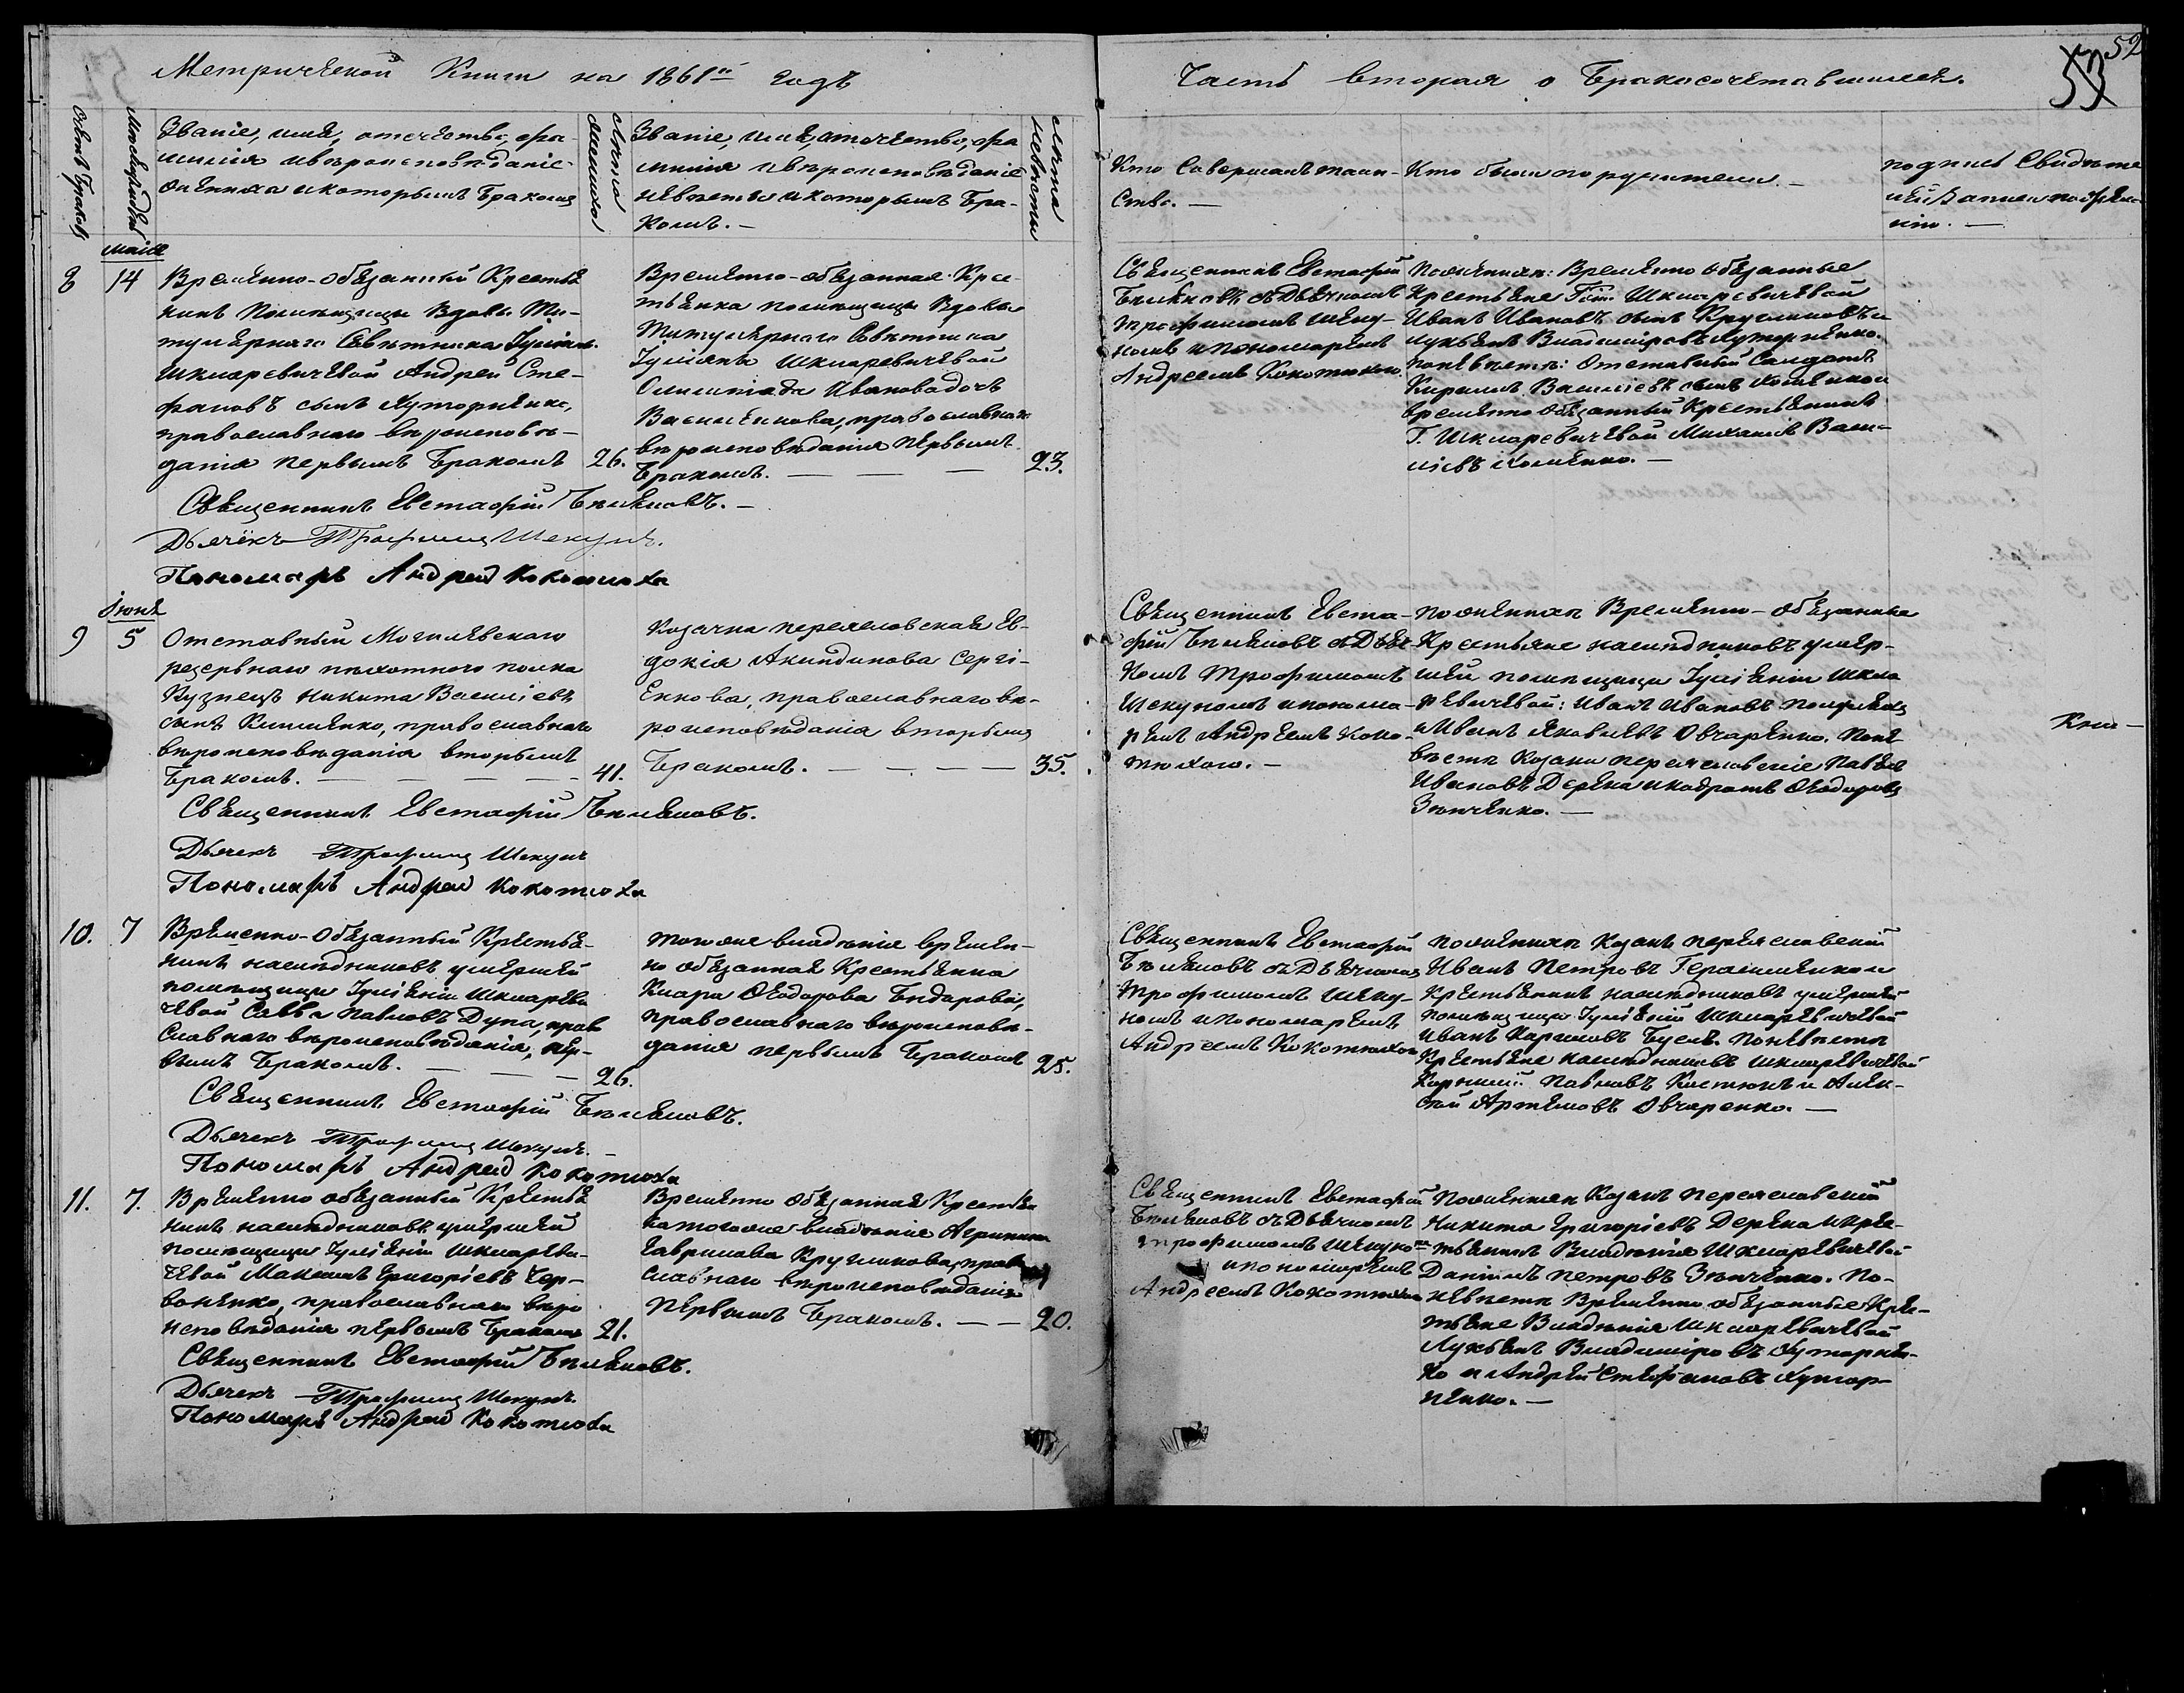 Метрической Книги на 1861й годъ
Часть вторая о Бракосочетавшихся.
53
52
Счетъ Браковъ
Мѣсяцъ и день
Званіе, имя, отечество, фа-
милія и вѣроисповѣданіе
жениха и которымъ бракомъ
Лѣта жениха
Званіе, имя, отечество, фа
милія и вѣроисповѣданіе
невѣсты и которымъ Бра-
комъ. —
Лѣта невѣсты
Кто Совершалъ таин-
Ство. —
Кто были поручители. —
подпись Свидѣте
лей Записи по жела
нію. —
маія
8
14
Временно-обязанный Крестья
нинъ Помѣщицы Вдовы Ти-
тулярнаго Совѣтника Іуліаніи
Шкляревичевой Андрей Сте-
фановъ сынъ Хуторненко,
православнаго вѣроисповѣ-
данія первымъ Бракомъ
26.
Временно-обязанная Крес-
тьянка помѣщицы Вдовы
Титулярнаго Совѣтника
Іуліаніи Шкляревичевой
Олимпіада Иванова дочь
Василенкова, православнаго
вѣроисповѣданія первымъ
Бракомъ. —
23.
Священникъ Евстафій
Бѣляковъ съ Дьячкомъ
Трофимомъ Шеку-
номъ и пономаремъ
Андреемъ Кокотюхою
По женихѣ: Временно обязанные
Крестьяне Гжи Шкляревичевой
Иванъ Ивановъ сынъ Кругликовъ и
Лукьянъ Владиміровъ Хуторненко.
по невѣстѣ: Отставный Солдатъ
Кирилъ Василіевъ сынъ Хоменко и
временно обязанный Крестьянинъ
Г. Шкляревичевой Михаилъ Васи-
ліевъ Хоменко. —
Священникъ Евстафій Бѣляковъ. —
Дьячекъ Трофимъ Шекунъ.
Пономарь Андрей Кокотюха
Іюня
9
5
Отставный Могилевскаго
резервнаго пѣхотнаго полка
Кузнецъ Никита Василіевъ
сынъ Клименко, православнаго
вѣроисповѣданія вторымъ
Бракомъ. —
41.
Козачка переясловская Ев-
докія Акиндинова Сергі-
енкова, православнаго вѣ-
роисповѣданія вторымъ
Бракомъ. —
35.
Священникъ Евста-
фій Бѣляковъ съ Дьяч-
комъ Трофимомъ
Шекуномъ и понома-
ремъ Андреемъ Коко-
тюхою. —
По женихѣ Временно-обязанные
Крестьяне наслѣдниковъ умер-
шей помѣщицы Іуліаніи Шкля
ревичевой: Иванъ Ивановъ
и Иванъ Яковлевъ Овчаренко. По не
вѣстѣ Козаки переясловскіе Павелъ
Ивановъ Дерека и Кодратъ Феодоровъ
Зѣнченко. —
Священникъ Евстафій Бѣляковъ.
Дьячекъ Трофимъ Шекунъ
Пономарь Андрей Кокотюха
10.
7
Временно-Обязанный Крестья-
нинъ наслѣдниковъ умершей
помѣщицы Іуліаніи Шкляреви
чевой Савва Павловъ Дупа, право
славнаго вѣроисповѣданія, пер-
вымъ Бракомъ. —
26.
того же владѣнія времен-
но обязанная Крестьянка
Киара Феодорова Бндарова,
православнаго вѣроисповѣ-
данія первымъ Бракомъ
25.
Священникъ Евстафій
Бѣляковъ съ Дьячкомъ
Трофимомъ Шеку-
номъ и Пономаремъ
Андреемъ Кокотюхою
По женихѣ Козакъ переясловскій
Иванъ Петровъ Герасименко и
Крестьянинъ наслѣдниковъ умершей
помѣщицы Іуліаніи Шкляревичевой
Иванъ Карповъ Бусъ. По невѣстѣ
Крестьяне наслѣдниковъ Шкляревичевой
Корнилій Павловъ Костюкъ и Алек-
сѣй Артемовъ Овчаренко. —
Священникъ Евстафій Бѣляковъ.
Дьячекъ Трофимъ Шекунъ. —
Пономарь Андрей Кокотюха
11.
7.
Временно обязанный Крестья
нинъ наслѣдниковъ умершей
помѣщицы Іуліаніи Шкляреви-
чевой Максимъ Григоріевъ Чер-
воненко, православнаго вѣро
исповѣданія первымъ Бракомъ
21.
Временно обязанная Крестьян
ка того же владѣнія Агрипина
Гаврилова Кругликова, право
славнаго вѣроисповѣданія
первымъ Бракомъ. —
20.
Священникъ Евстафій
Бѣляковъ съ Дьячкомъ
Трофимомъ Шекуномъ
и пономаремъ
Андреемъ Кокотюхою
По женихѣ Козакъ переясловскій
Никита Григоріевъ Дерека и Крес-
тьянинъ Владѣнія Шкляревичевой
Даніилъ Петровъ Зѣнченко. По-
невѣстѣ Временно обязанные Крес-
тьяне Владѣнія Шкляревичевой
Лукьянъ Владиміровъ Хуторнен-
ко и Андрей Стефановъ Хутор-
ненко. —
Священникъ Евстафій Бѣляковъ.
Дьячекъ Трофимъ Шекунъ.
Пономарь Андрей Кокотюха